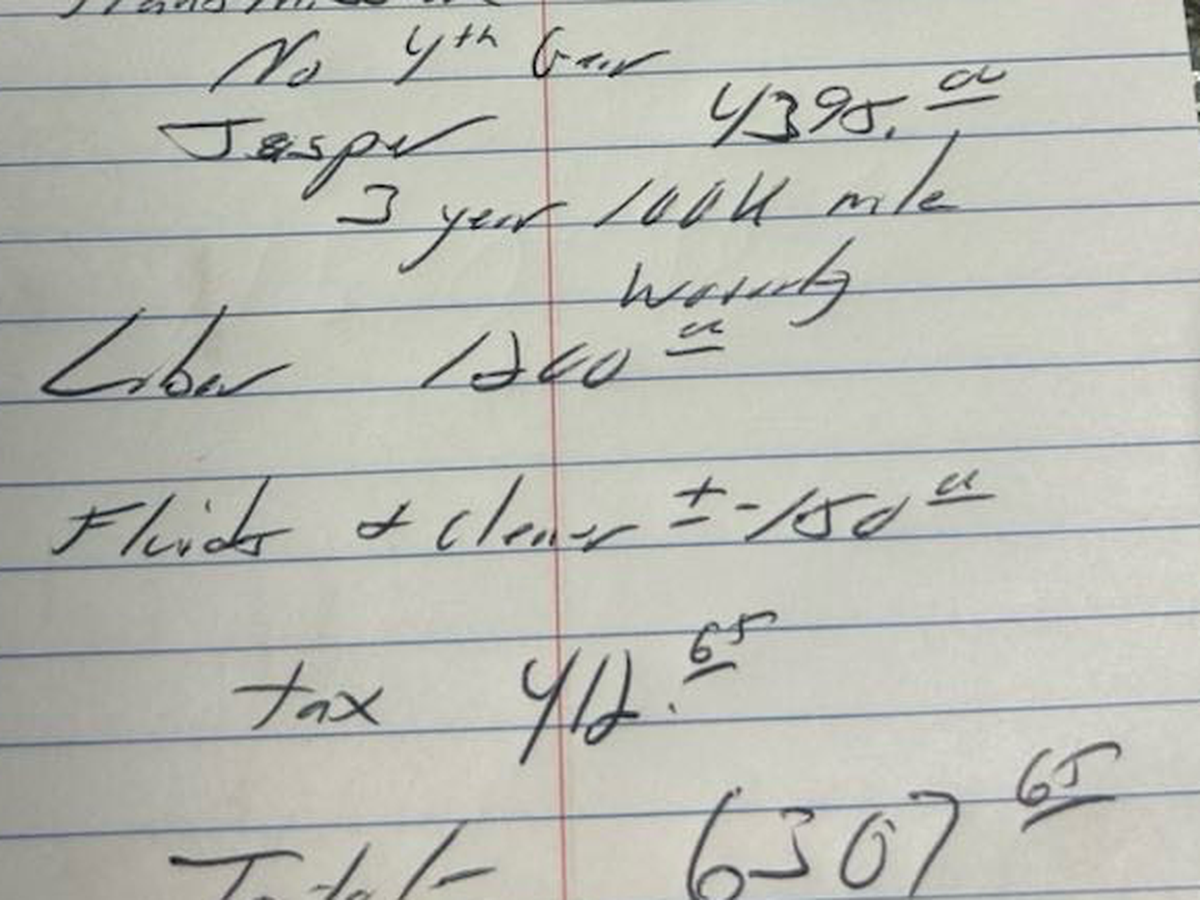 No 4th Gear
Jasper 4395.00
3 year 100K mile
Warranty
Labor 1200 00
Fluids & cleaner ± -150 00
tax 412.65
Total - 6307 65